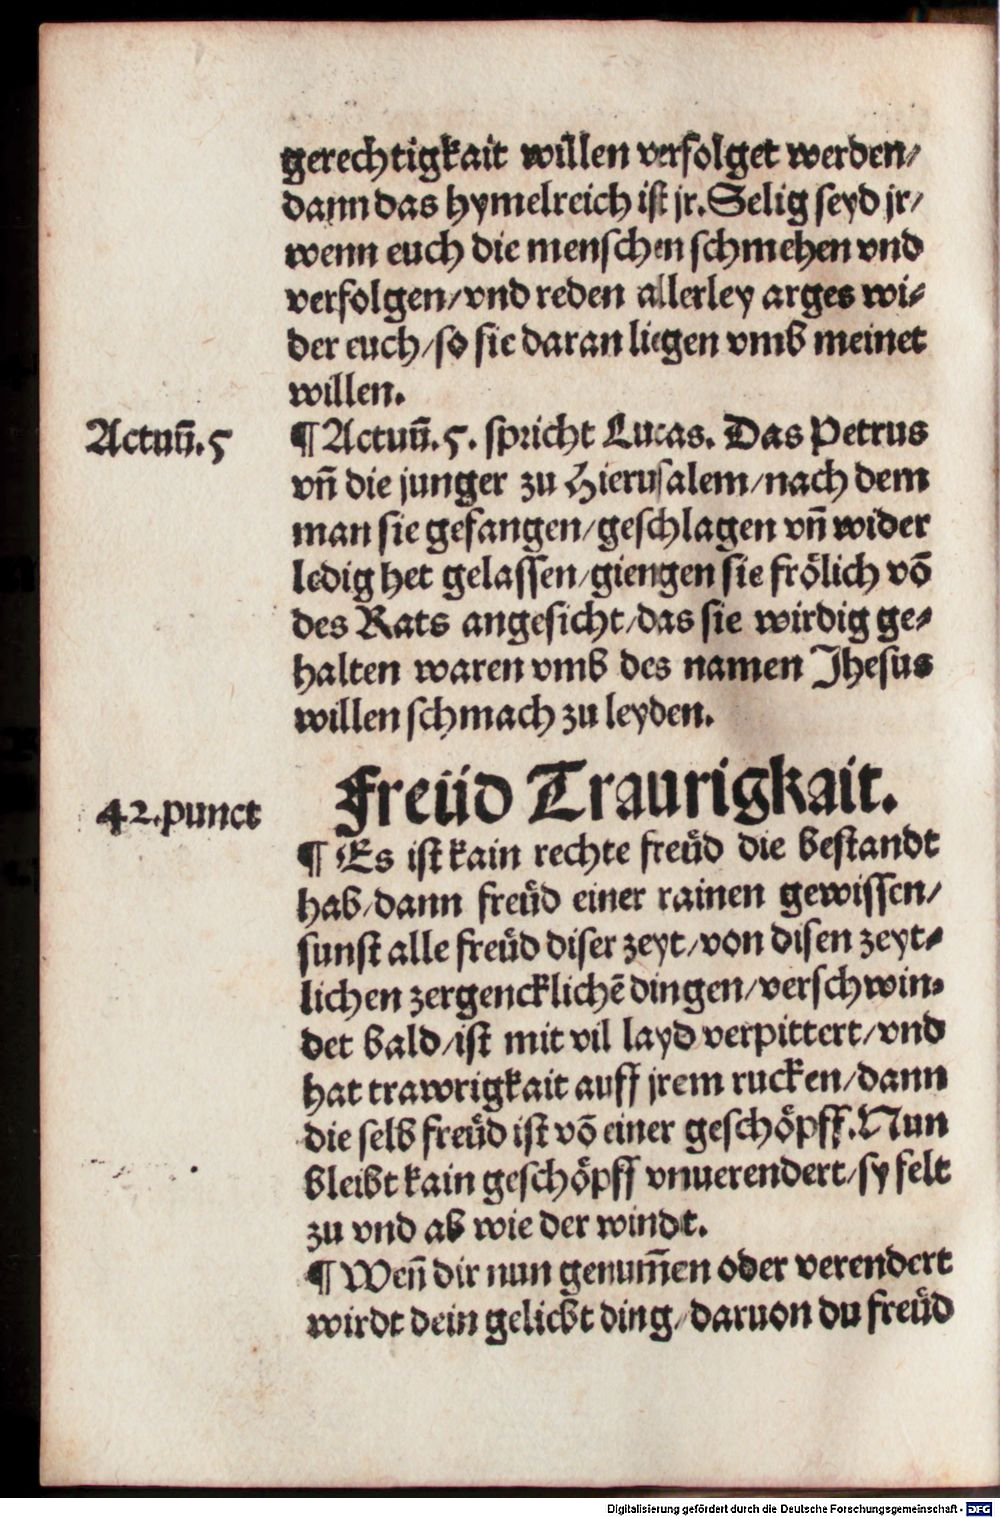 gerechtigkait willen verfolget werden/
dann das hymelreich ist jr. Selig seyd jr/
wenn euch die menschen schmehen vnd
verfolgen/vnd reden allerley arges wi⸗
der euch/so sie daran liegen vmb meinet
willen.
Actuū̃. 5
¶ Actuū̃. 5. spricht Lucas. Das Petrus
vñ die junger zu Hierusalem/nach dem
man sie gefangen/geschlagen vñ wider
ledig het gelassen/giengen sie frölich võ
des Rats angesicht/das sie wirdig ge⸗
halten waren vmb des namen Jhesus
willen schmach zu leyden.
Freüd Traurigkait.
42.punct
¶ Es ist kain rechte freüd die bestandt
hab/dann freüd einer rainen gewissen/
sunst alle freüd diser zeyt/von disen zeyt⸗
lichen zergencklichẽ dingen/verschwin⸗
det bald/ist mit vil layd verpittert/vnd
hat trawrigkait auff jrem rucken/dann
die selb freüd ist võ einer geschöpff. Nun
bleibt kain geschöpff vnuerendert/sy felt
zu vnd ab wie der windt.
¶ Weñ dir nun genum̃en oder verendert
wirdt dein geliebt ding/daruon du freüd
Digitalisierung gefördert durch die Deutsche Forschungsgemeinschaft - DFG